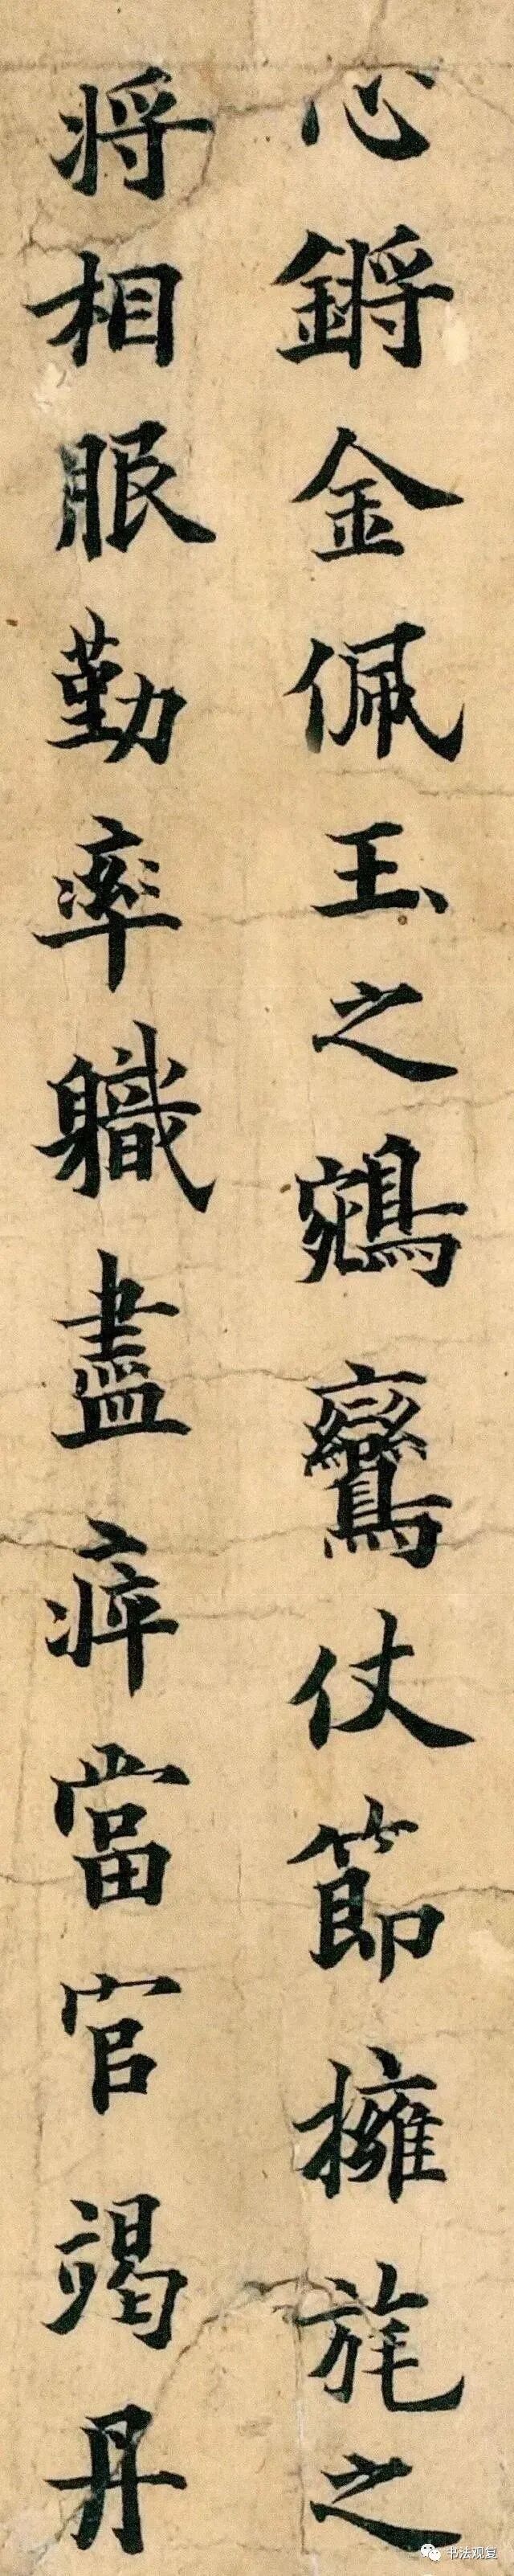 心鏘金佩玉之鵷鸞仗節擁旄之
将相服勤率軄盡瘁當官竭丹
书法观复